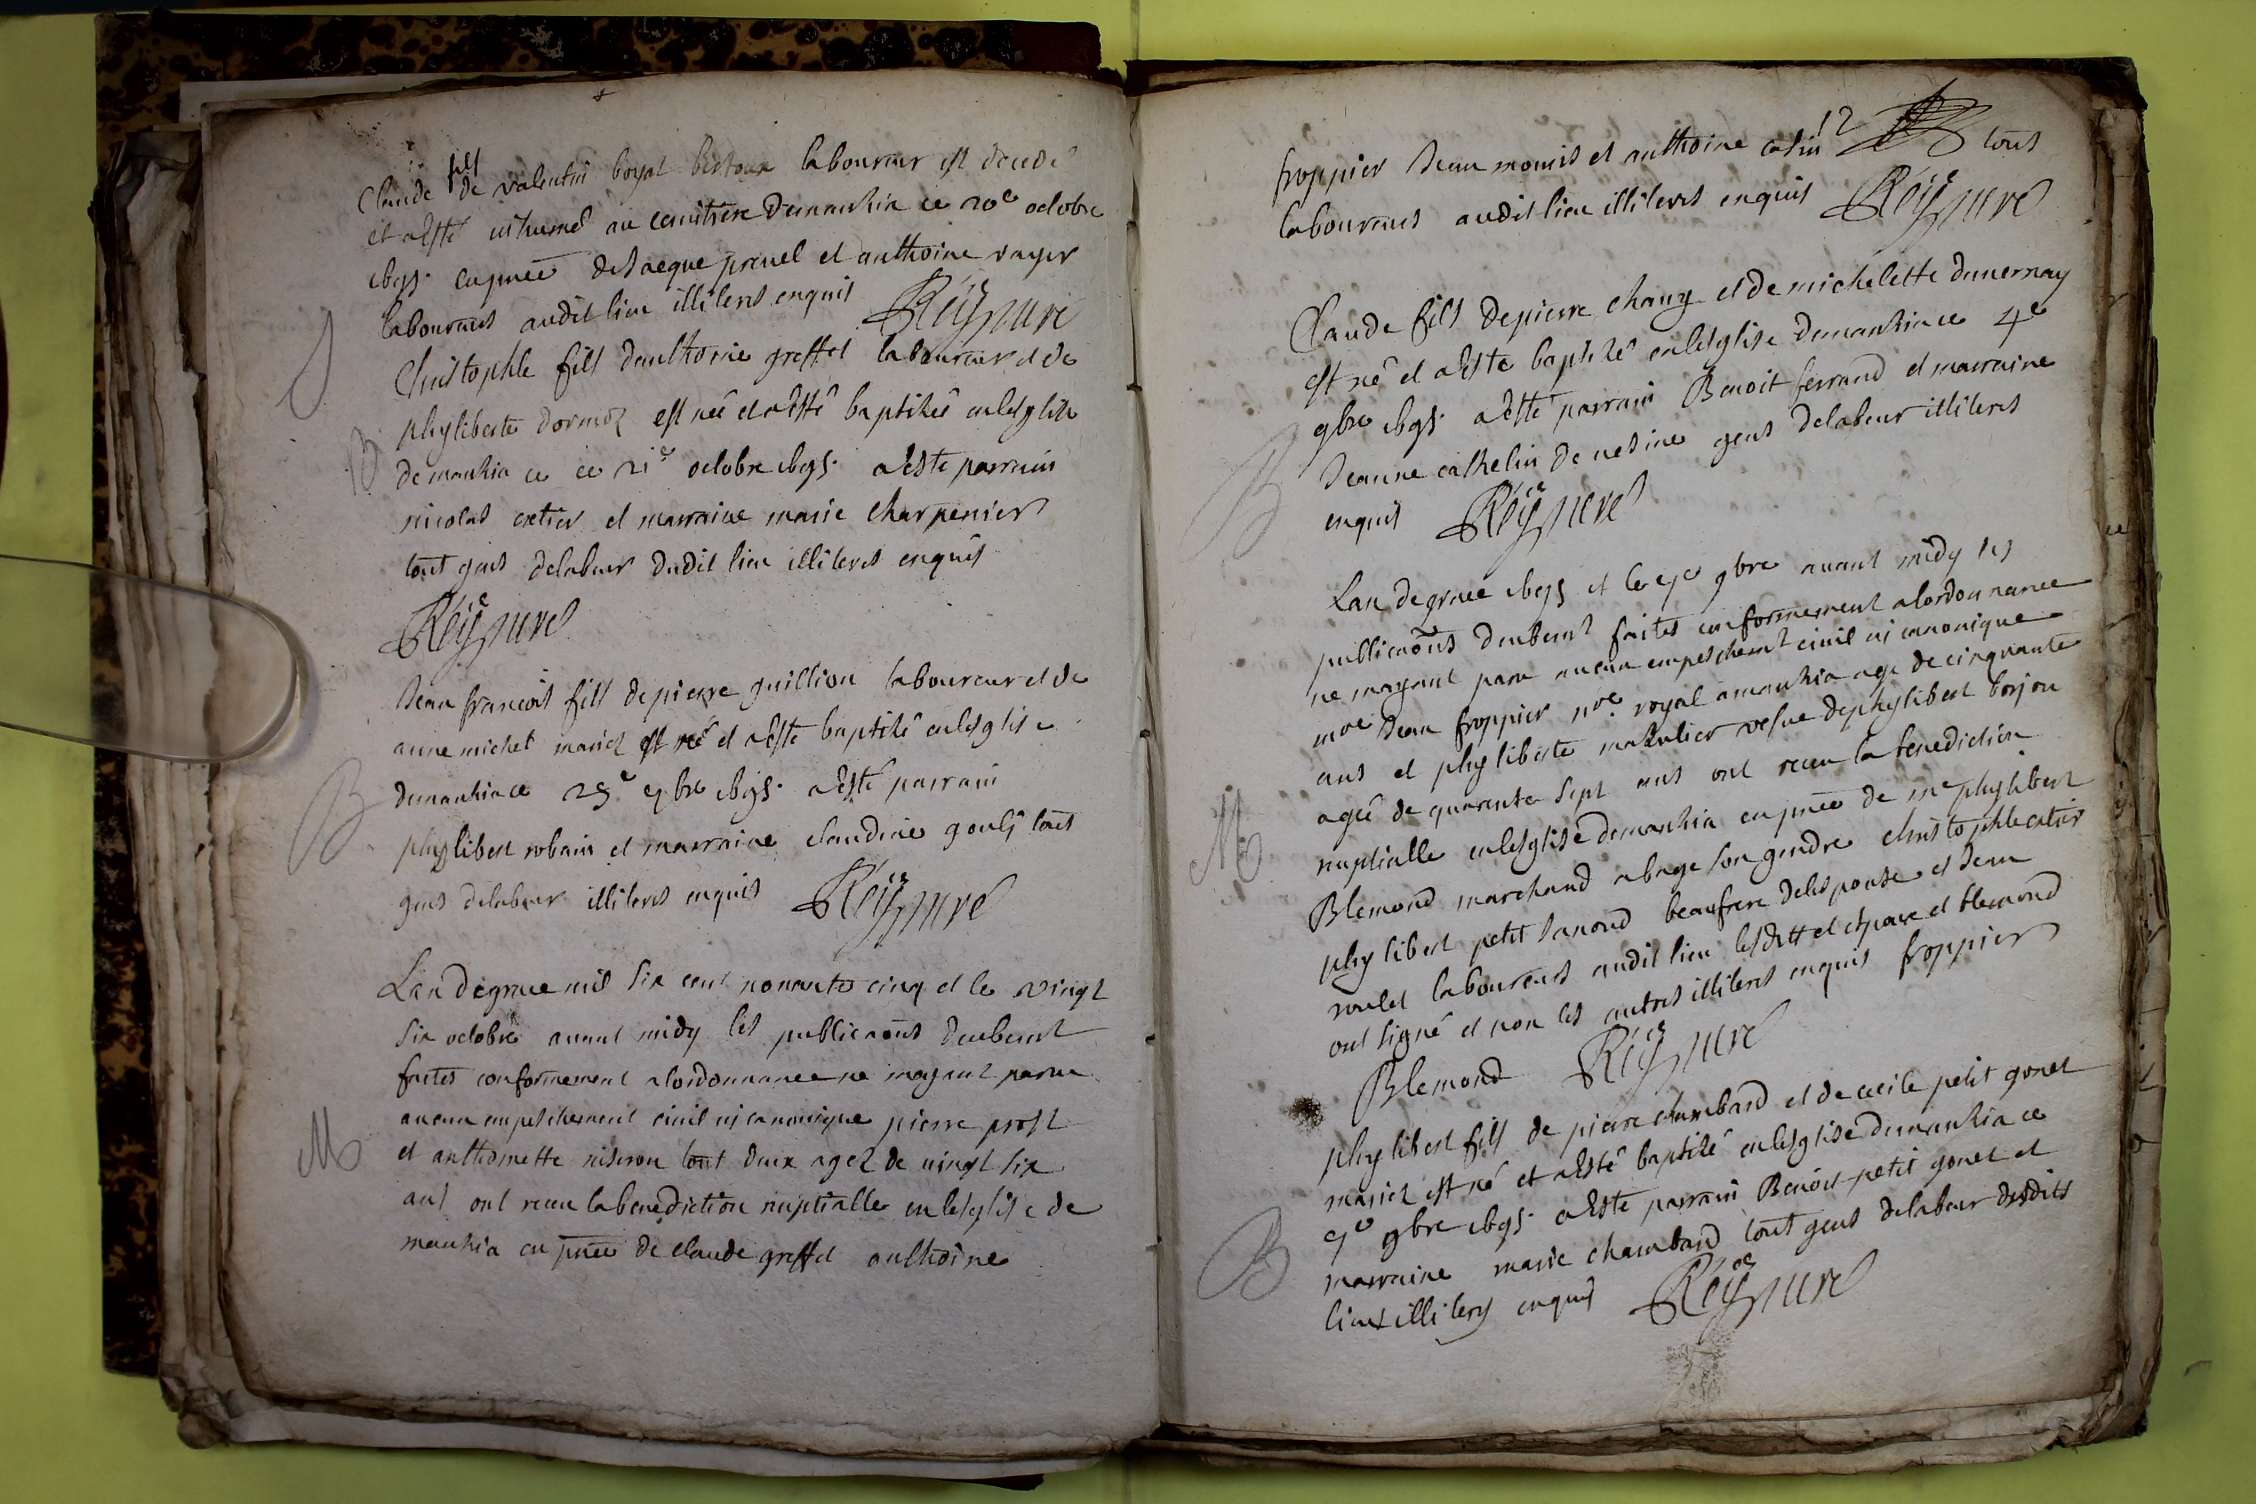 Claude fils de valentin boyat laboureur est decede
et a esté inhumé au cemitiere demanzia ce 20e octobre
en pnce de Jacque et anthoine royer
laboureurs audit lieu illiteres enquis Rey curé
Christophle fils danthoine greffet laboureur et de
phyliberte dormoz est né et a esté baptizé en lesglise
de manzia ce 21e octobre a esté parrain
nicolas cretier et marraine marie charpenier
tout gens delabeur dudit lieu illiteres enquis
Rey curé
Jean francois fils de pierre guillion laboureur et de
anne michel mariez est né et a esté baptizé en lesglise
demanzia ce 25e a esté parrain
phylibert robain et marraine claudine gouly tous
gens delabeur illiteres enquis Rey curé
Lan de grace mil six cent nonante cinq et le vingt
six octobre avant midy les publicaõns deubemt
faites conformement alordonnance ne mayant paru
aucun empeschement civil ni canonique pierre prost
et anthomette niseron tout deux agez de vingt six
ans ont receu la benediction nuptialle en lesglise de
manzia en pnce de claude greffet anthoine
M
B
B
12
froppier Jean monnet et anthoine catin tous
laboureurs audit lieu illiteres enquis Rey curé
Claude fils de pierre chany et de michelette duvernay
est né et a esté baptizé en lesglise demanzia ce 4e
9bre a esté parrain Benoit ferrand et marraine
Jeanne cathelin de gens delabeur illiteres
enquis Rey curé
Lan de grace et le 9bre avant midy les
publicaõns deubemt faites conformement alordonnance
ne mayant paru aucun empeschemt civil ni canonique
me Jean froppier nre royal a manzia age de cinquante
ans et phyliberte vefve de phylibert borjon
agée de quarante sept ans ont receu la benediction
nuptialle en lesglise demanzia en pnce de me phylibert
Blemond marchand abage son gendre christophle cretier
phylibert petit Janond beaufrere delespouse et Jean
laboureurs audit lieu et blemond
ont signé et non les autres illiteres enquis froppier
Blemond Rey curé
phylibert fils de pierre chambard et de cecile petit gonet
mariez est né et a esté baptizé en lesglise demanzia ce
9bre a esté parrain Benoit petit gonet et
marraine marie chambard tout gens delabeur desdits
lieux illiteres enquis Rey curé
B
M
B